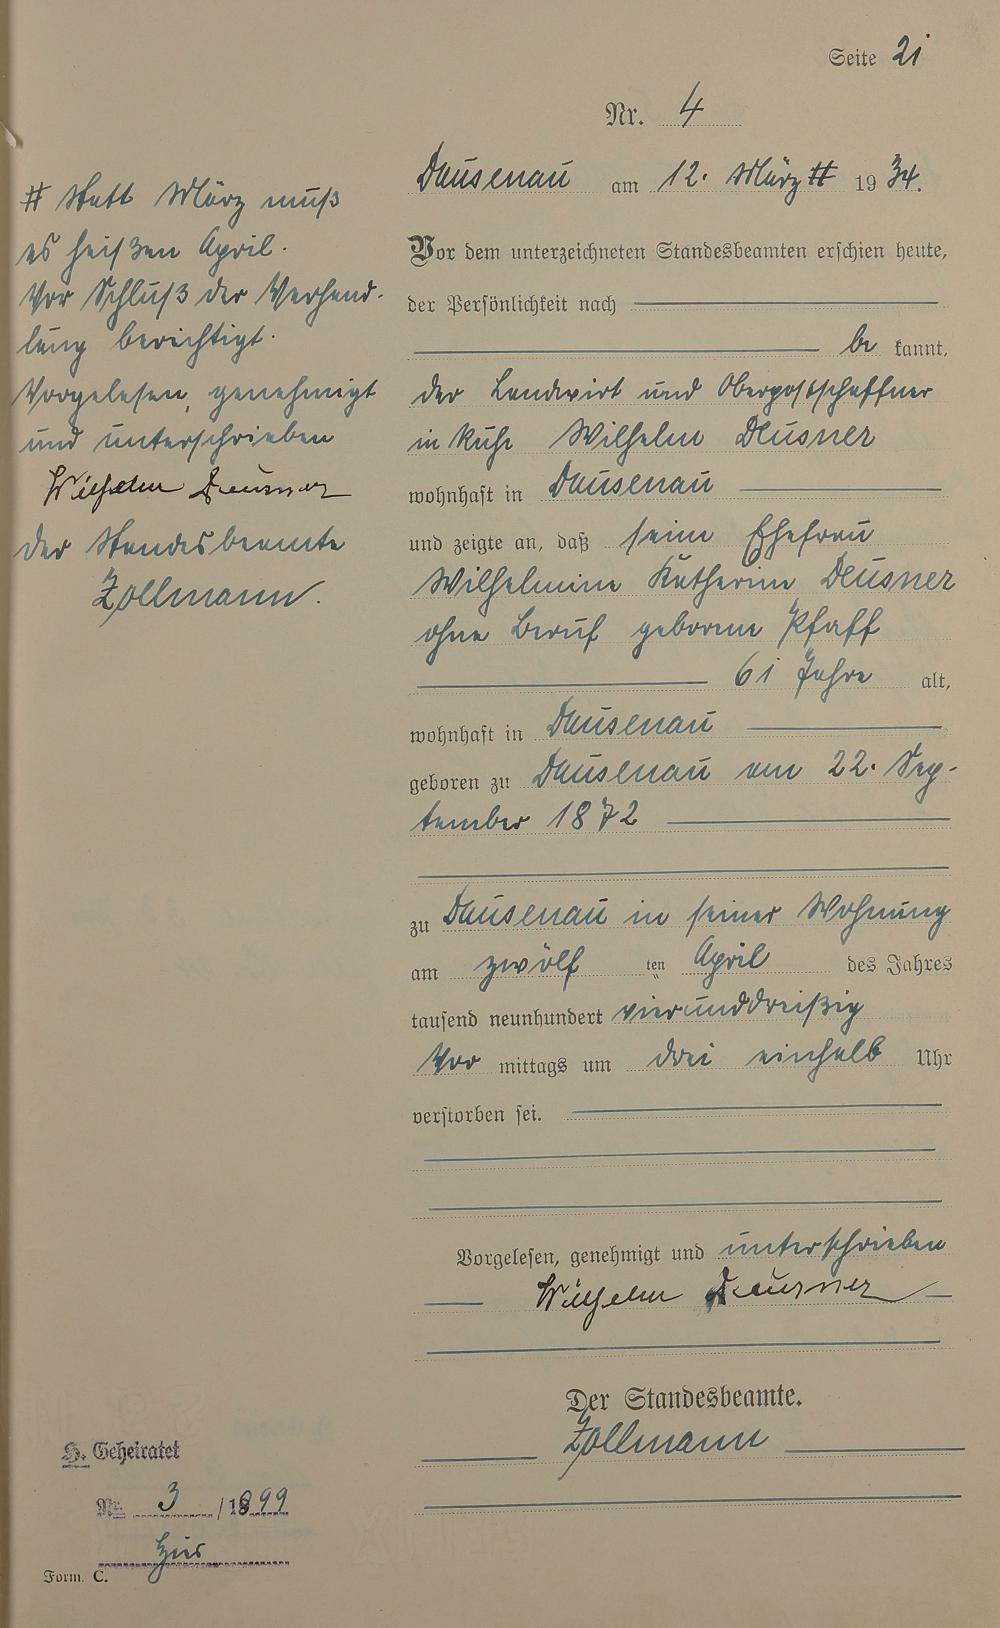 Seite 21
Nr. 4
Dausenau am 12. März # 1934.
# Statt März muß
es heißen April.
Vor Schluß der Verhand-
lung berichtigt.
Vorgelesen, genehmigt
und unterschrieben
Wilhelm Deusner
Der Standesbeamte
Zollmann.
Vor dem unterzeichneten Standesbeamten erschien heute,
der Persönlichkeit nach
be kannt,
der Landwirt und Oberpostschaffner
in Ruhe Wilhelm Deusner
wohnhaft in Dausenau
und zeigte an, daß seine Ehefrau
Wilhelmine Katharine Deusner
ohne Beruf geborene Pfaff
61 Jahre alt,
wohnhaft in Dausenau
geboren zu Dausenau am 22. Sep-
tember 1872
zu Dausenau in seiner Wohnung
am zwölf ten April des Jahres
tausend neunhundert vierunddreißig
Vor mittags um drei einhalb Uhr
verstorben sei.
Vorgelesen, genehmigt und unterschrieben
Wilhelm Deusner
Der Standesbeamte.
Zollmann
H. Geheiratet
Nr. 3 / 1899
hier
Form. C.